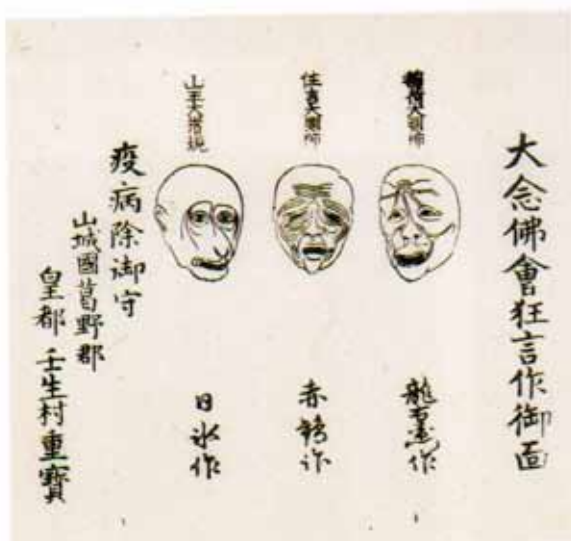 大念佛會狂言作御面
龍右衛門作
住吉大明神
赤鶴作
山王大権現
日氷作
疫病除御守
山城國葛野郡
皇都壬生村重寳